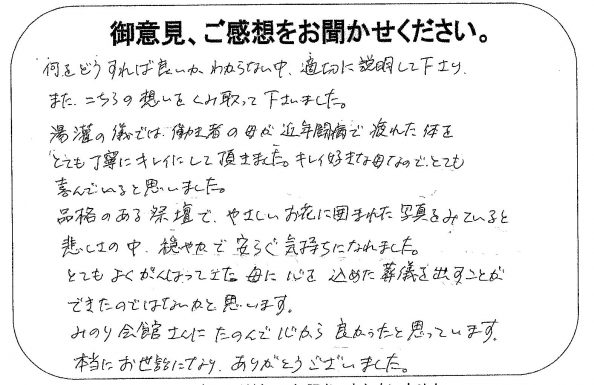 御意見、ご感想をお聞かせください。
何をどうすれば良いか、わからない中、適切に説明して下さり、
また、こちらの想いをくみ取って下さいました。
湯灌の儀では、働き者の母が近年闘病で疲れた体を
とても丁寧にキレイにして頂きました。キレイ好きな母なので、とても
喜んでいると思いました。
品格のある祭壇で、やさしいお花に囲まれた写真をみていると
悲しさの中、穏やかで安らぐ気持ちになれました。
とてもよくがんばってきた母に心を込めた葬儀を出すことが
できたのではないかと思います。
みのり会館さんにたのんで心から良かったと思っています。
本当にお世話になり、ありがとうございました。